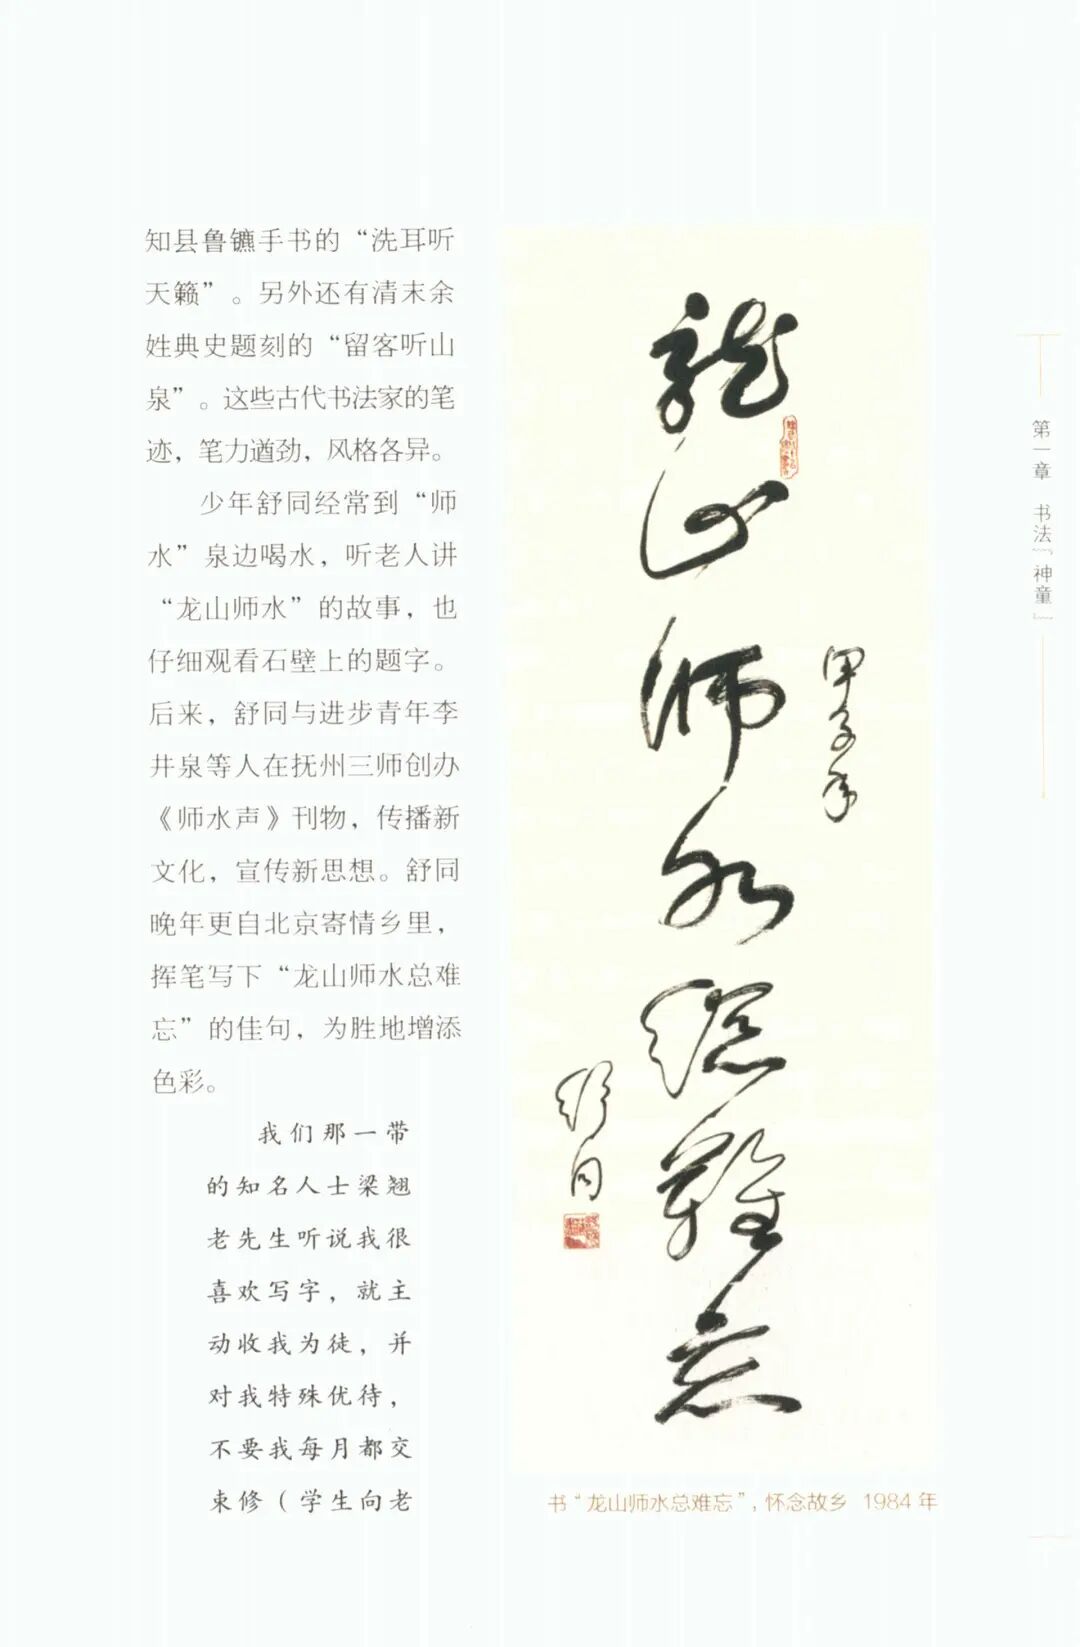 知县鲁镳手书的“洗耳听
天籁”。另外还有清末余
姓典史题刻的“留客听山
泉”。这些古代书法家的笔
迹，笔力遒劲，风格各异。
少年舒同经常到“师
水”泉边喝水，听老人讲
“龙山师水”的故事，也
仔细观看石壁上的题字。
后来，舒同与进步青年李
井泉等人在抚州三师创办
《师水声》刊物，传播新
文化，宣传新思想。舒同
晚年更自北京寄情乡里，
挥笔写下“龙山师水总难
忘”的佳句，为胜地增添
色彩。
我们那一带
的知名人士梁翘
老先生听说我很
喜欢写字，就主
动收我为徒，并
对我特殊优待，
不要我每月都交
束修（学生向老
龍山师水總難忘
甲子年
舒同
书“龙山师水总难忘”，怀念故乡 1984年
第一章 书法“神童”